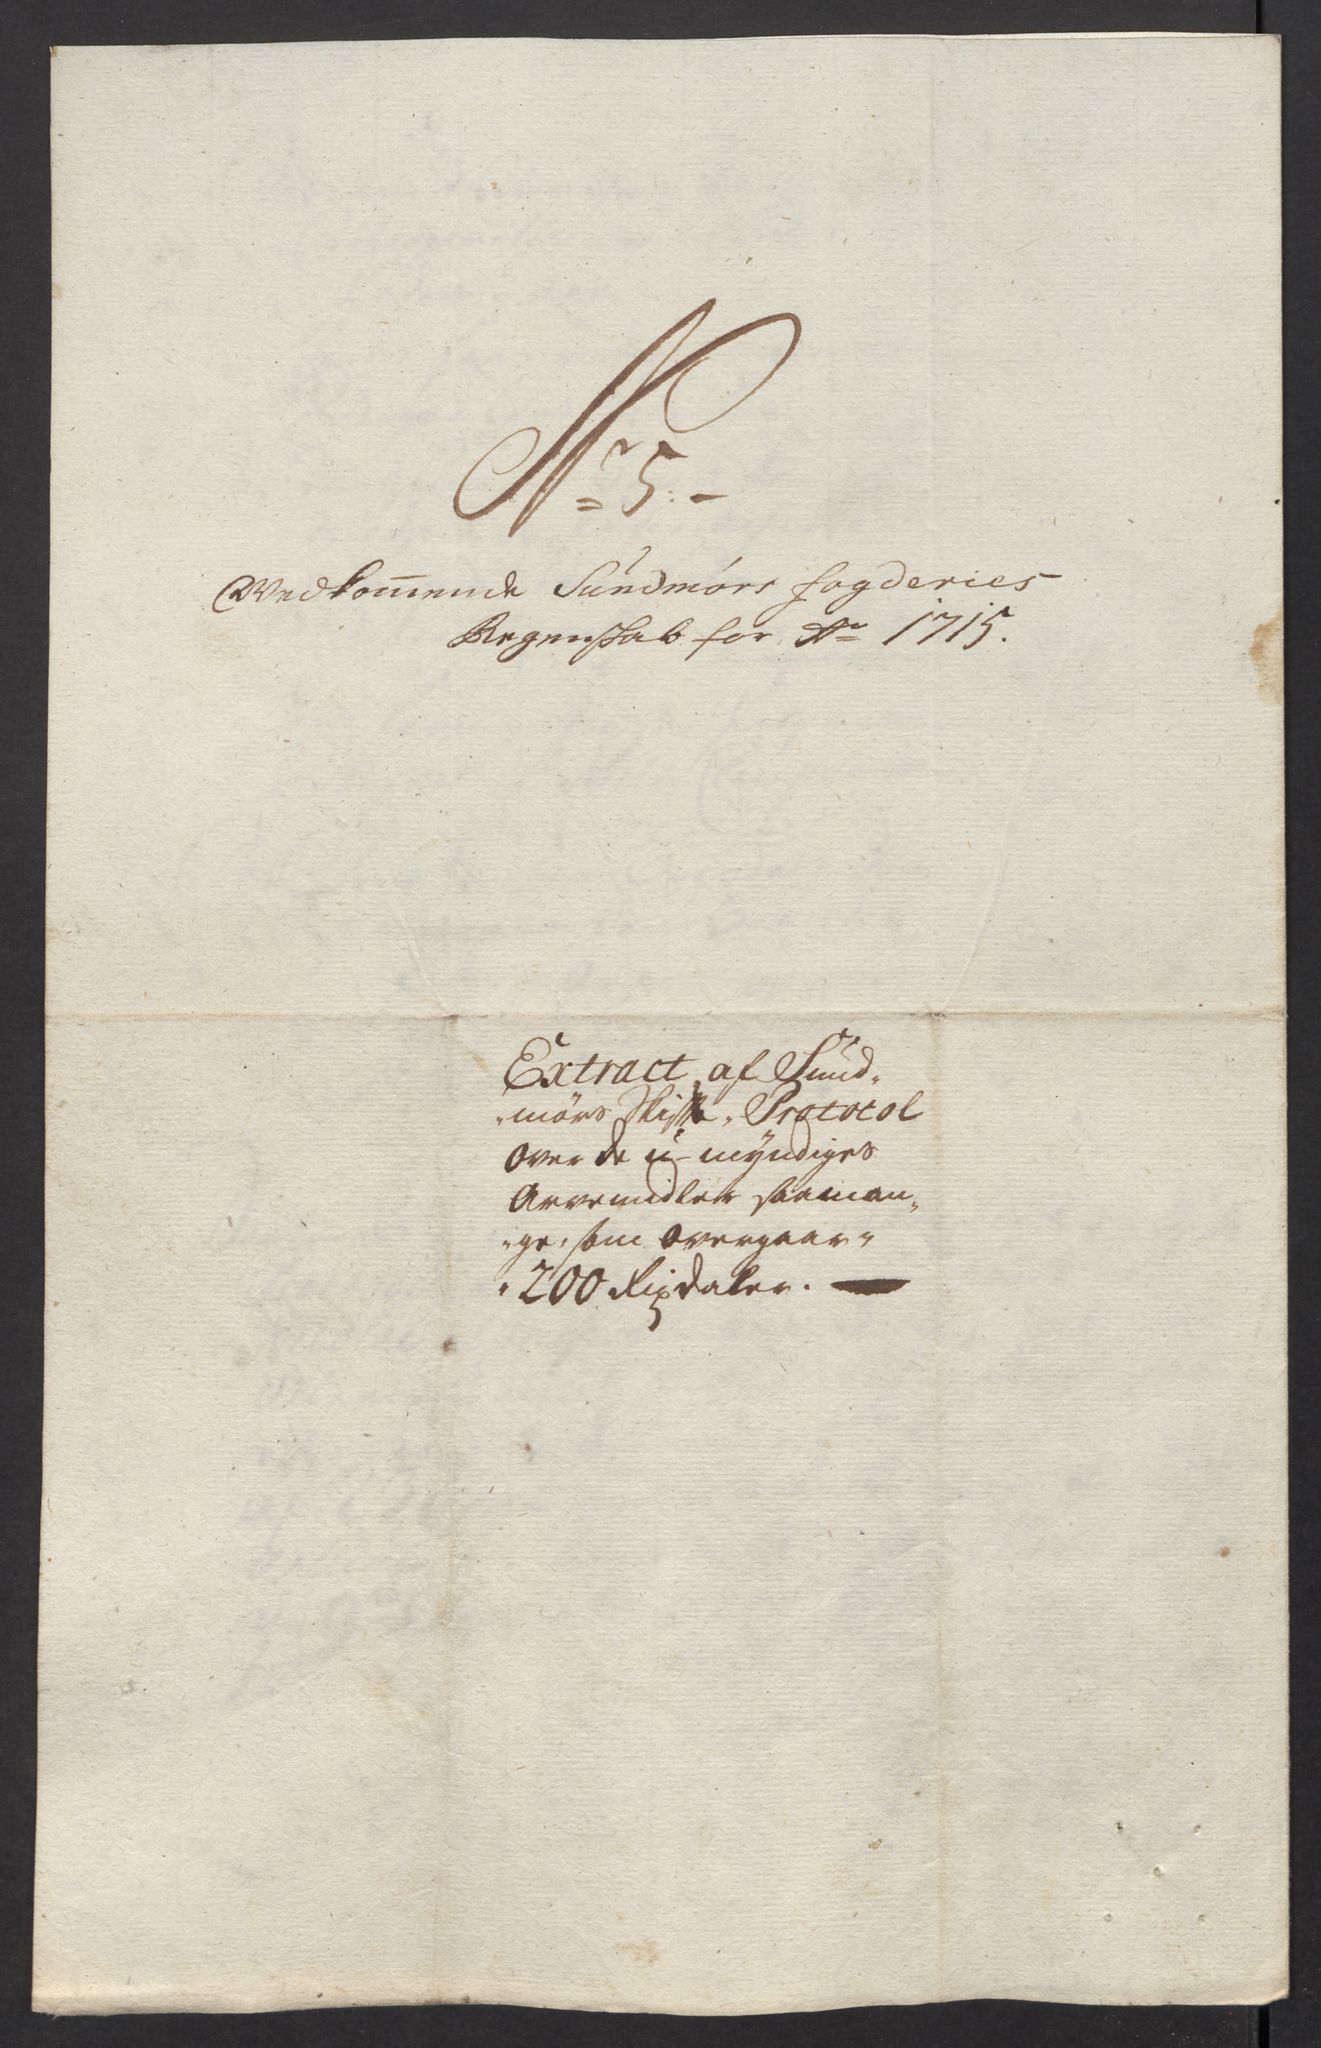 No 5.
Vedkom̄ende Sundmørs fogderies
Regenskab for Ao 1715.
Extract af Sund-
mørs Skifte-Protocol
over de u-myndiges
Arvemidler saaman-
ge, som overgaar
200 Rixdaler.